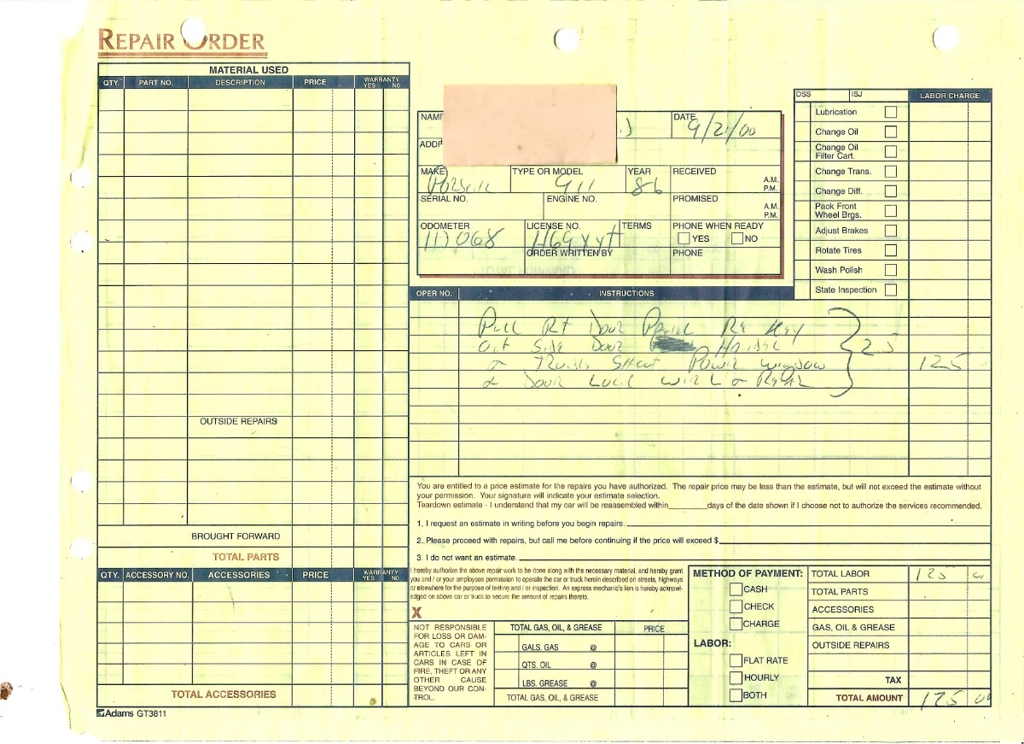 REPAIR ORDER
MATERIAL USED
QTY. PART NO. DESCRIPTION PRICE WARRANTY YES NO
OUTSIDE REPAIRS
BROUGHT FORWARD
TOTAL PARTS
QTY. ACCESSORY NO. ACCESSORIES PRICE WARRANTY YES NO
TOTAL ACCESSORIES
Adams GT3811
NAME
DATE 9/21/00
ADD
MAKE TYPE OR MODEL 911 YEAR 86 RECEIVED A.M. P.M.
SERIAL NO. ENGINE NO. PROMISED A.M. P.M.
ODOMETER 117068 LICENSE NO. TERMS PHONE WHEN READY YES NO
ORDER WRITTEN BY PHONE
DSS ISJ LABOR CHARGE
Lubrication
Change Oil
Change Oil
Filter Cart.
Change Trans.
Change Diff.
Pack Front
Wheel Brgs.
Adjust Brakes
Rotate Tires
Wash Polish
State Inspection
OPER NO. INSTRUCTIONS
Pull Rt Door Panel Re Key
Out Side Door Handle 2.5
Truble Shoot Power window 125
& Door Lock
You are entitled to a price estimate for the repairs you have authorized. The repair price may be less than the estimate, but will not exceed the estimate without
your permission. Your signature will indicate your estimate selection.
Teardown estimate - I understand that my car will be reassembled within________days of the date shown if I choose not to authorize the services recommended.
1. I request an estimate in writing before you begin repairs.
2. Please proceed with repairs, but call me before continuing if the price will exceed $
3. I do not want an estimate.
I hereby authorize the above repair work to be done along with the necessary material, and hereby grant
you and / or your employees permission to operate the car or truck herein described on streets, highways
or elsewhere for the purpose of testing and / or inspection. An express mechanic's lien is hereby acknowl-
edged on above car or truck to secure the amount of repairs thereto.
X
NOT RESPONSIBLE
FOR LOSS OR DAM-
AGE TO CARS OR
ARTICLES LEFT IN
CARS IN CASE OF
FIRE, THEFT OR ANY
OTHER CAUSE
BEYOND OUR CON-
TROL.
TOTAL GAS, OIL, & GREASE PRICE
GALS. GAS @
QTS. OIL @
LBS. GREASE @
TOTAL GAS, OIL, & GREASE
METHOD OF PAYMENT:
CASH
CHECK
CHARGE
LABOR:
FLAT RATE
HOURLY
BOTH
TOTAL LABOR 125
TOTAL PARTS
ACCESSORIES
GAS, OIL & GREASE
OUTSIDE REPAIRS
TAX
TOTAL AMOUNT 125 00